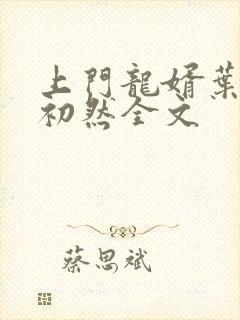 上門龍婿葉
初然全文
蔡思斌